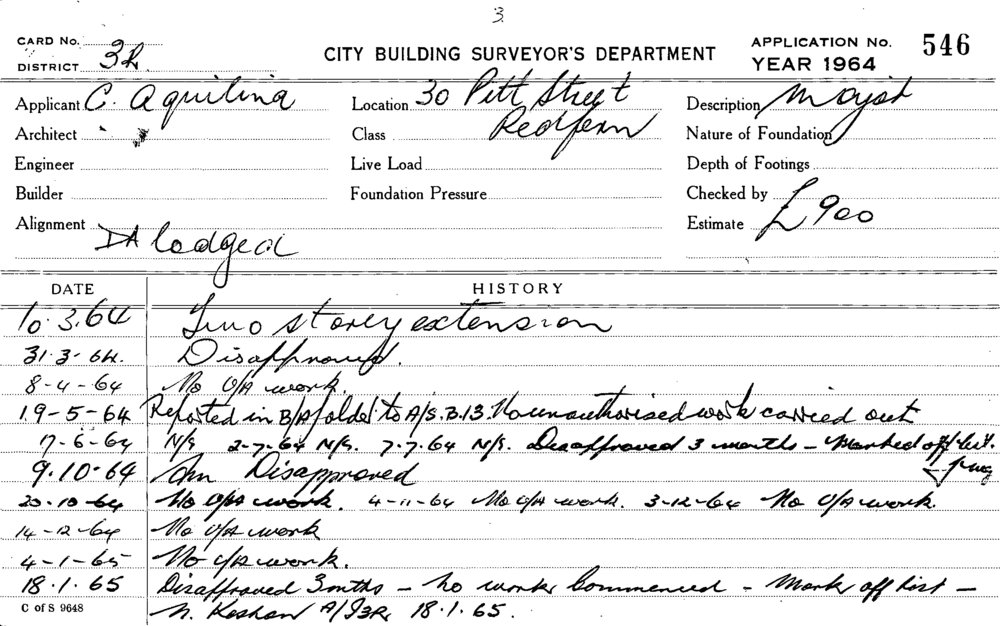 3
CARD No.
DISTRICT 3R
CITY BUILDING SURVEYOR'S DEPARTMENT
APPLICATION No. 546
YEAR 1964
Applicant C. Aquilina
Location 30 Pitt Street
Redfern
Description
Architect
Class
Nature of Foundation
Engineer
Live Load
Depth of Footings
Builder
Foundation Pressure
Checked by
Alignment
Estimate £900
DA lodged
DATE
HISTORY
10.3.64 Two storey extension
31.3.64. Disapproved.
8-4-64 No O/A work.
19-5-64 Reported in B/A folder to A/S.B.13. No unauthorised work carried out
17-6-64 N/S 2-7-64 N/S. 7.7.64 N/S. Disapproved 3 months - Marked off list.
9.10.64 Disapproved
20-10-64 No O/A work. 4-11-64 No O/A work. 3-12-64 No O/A work.
14-12-64 No O/A work
4-1-65 No O/A work.
18.1.65 Disapproved 3mths - no works commenced - Mark off list -
C of S 9648
N. Keshan A/I3R 18.1.65.